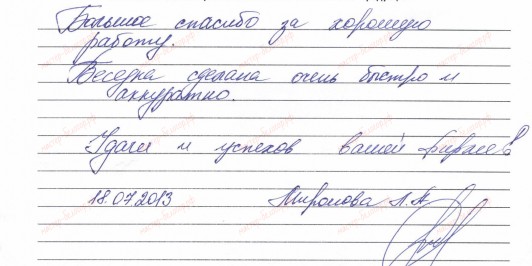 Большое спасибо за хорошую
работу.
Беседка сделана очень быстро и
аккуратно.
Удачи и успехов вашей фирме!
18.07.2013 Миронова Л.А.